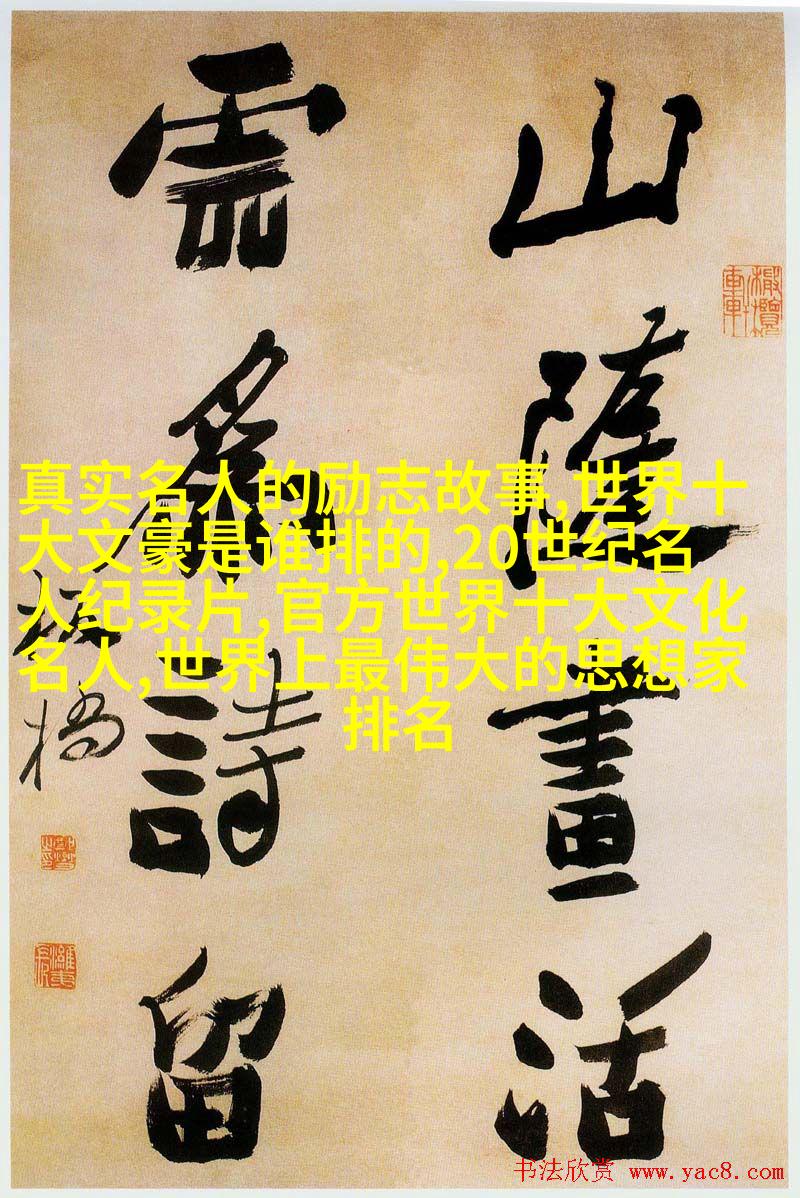 山隨畫活
雲爲詩留
板橋
真实名人的励志故事,世界十
大文豪是谁排的,20世纪名
人纪录片,官方世界十大文化
名人,世界上最伟大的思想家
排名
书法欣赏 www.yac8.com